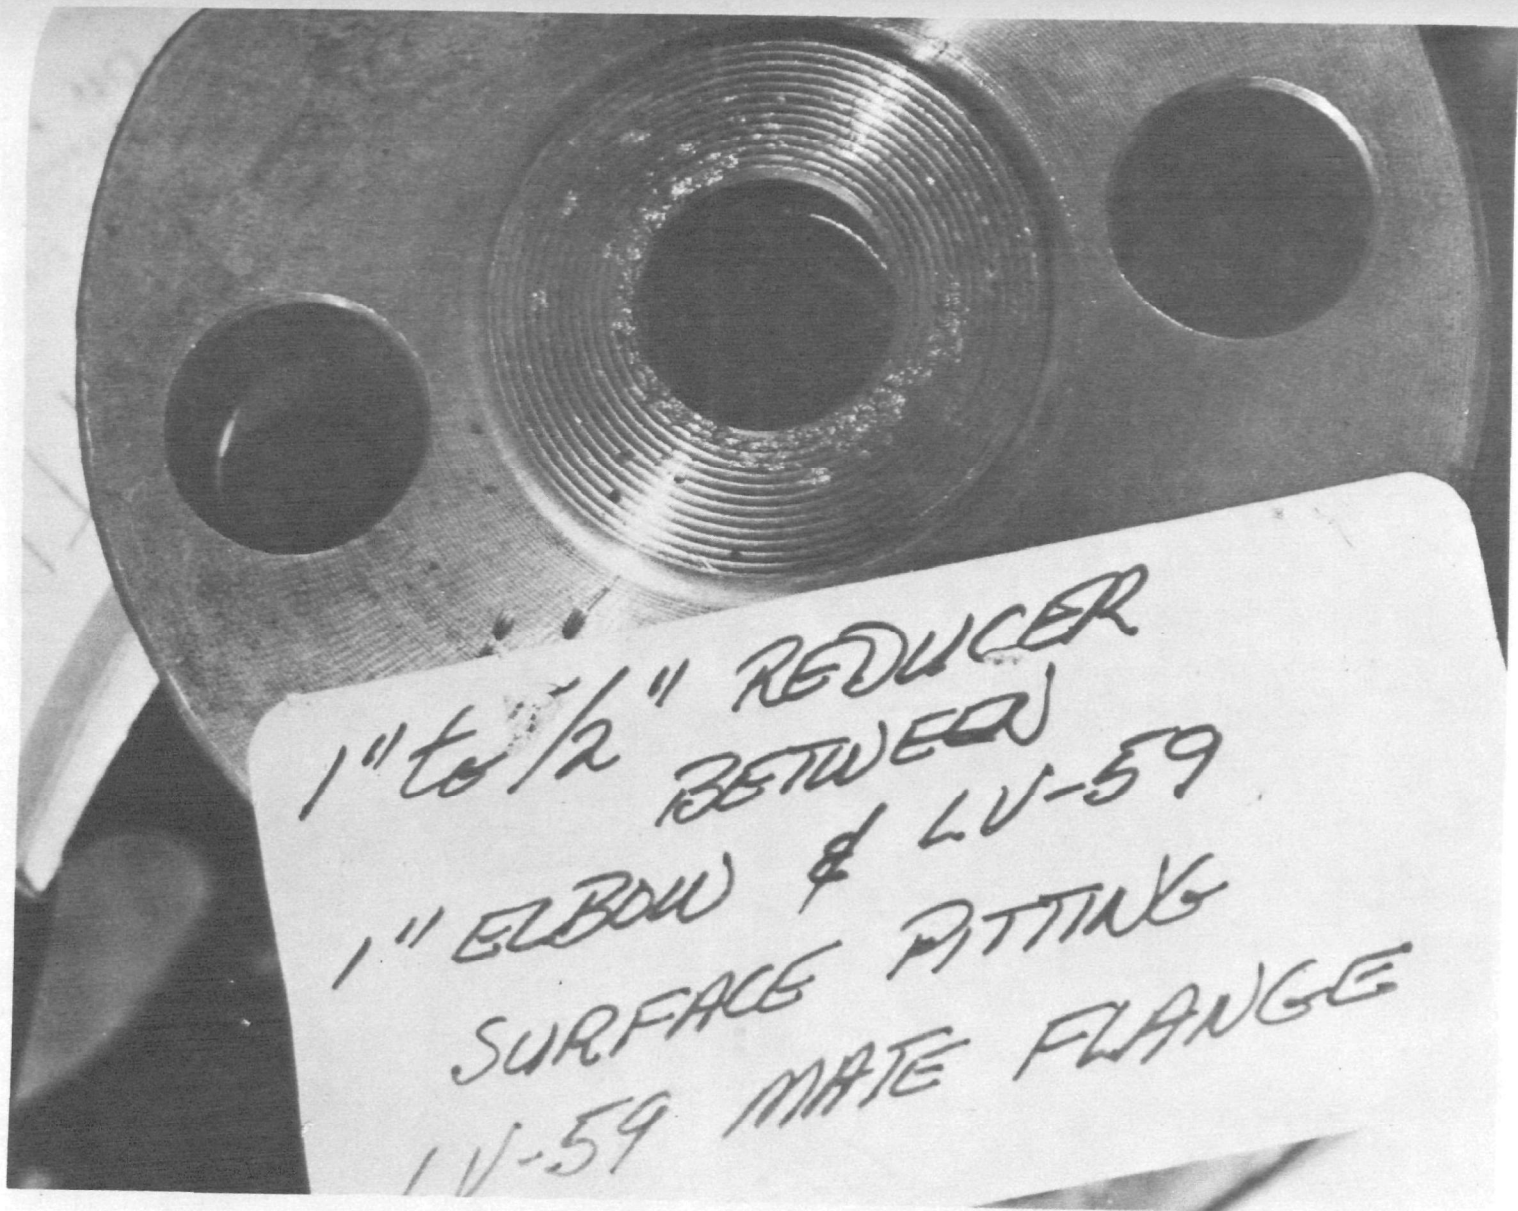 1" to 1/2" REDUCER
BETWEEN
1" ELBOW & LV-59
SURFACE PITTING
LV-59 MATE FLANGE